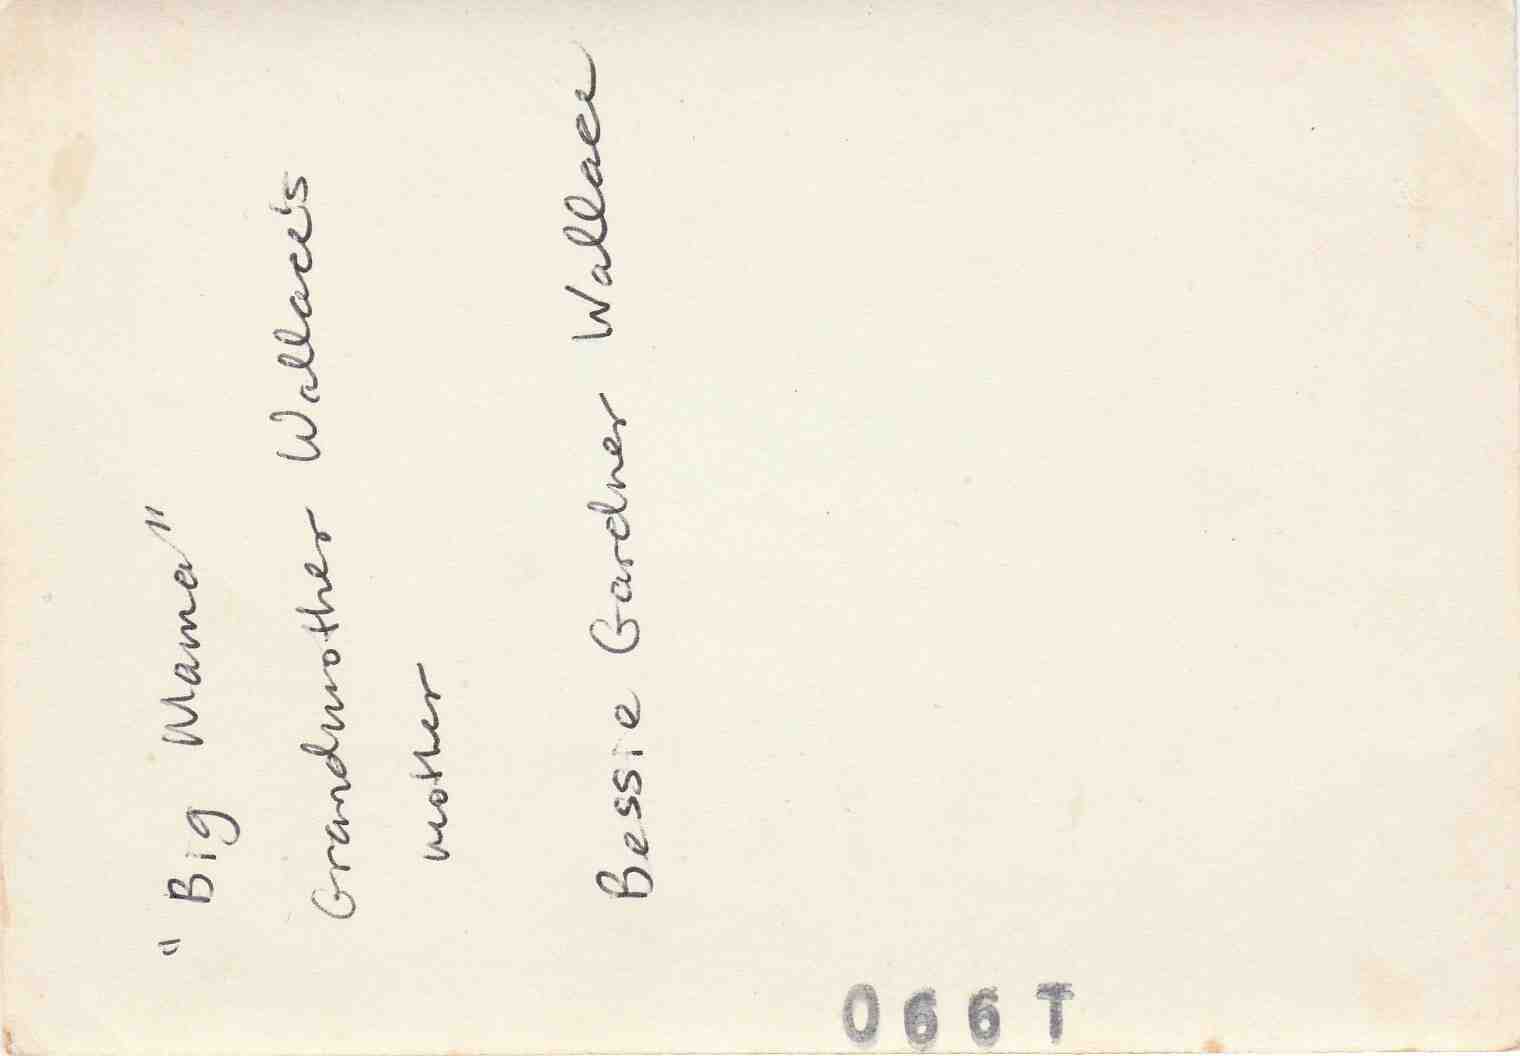 "Big Mama"
Grandmother Wallace's
mother
Bessie Gardner Wallace
1990